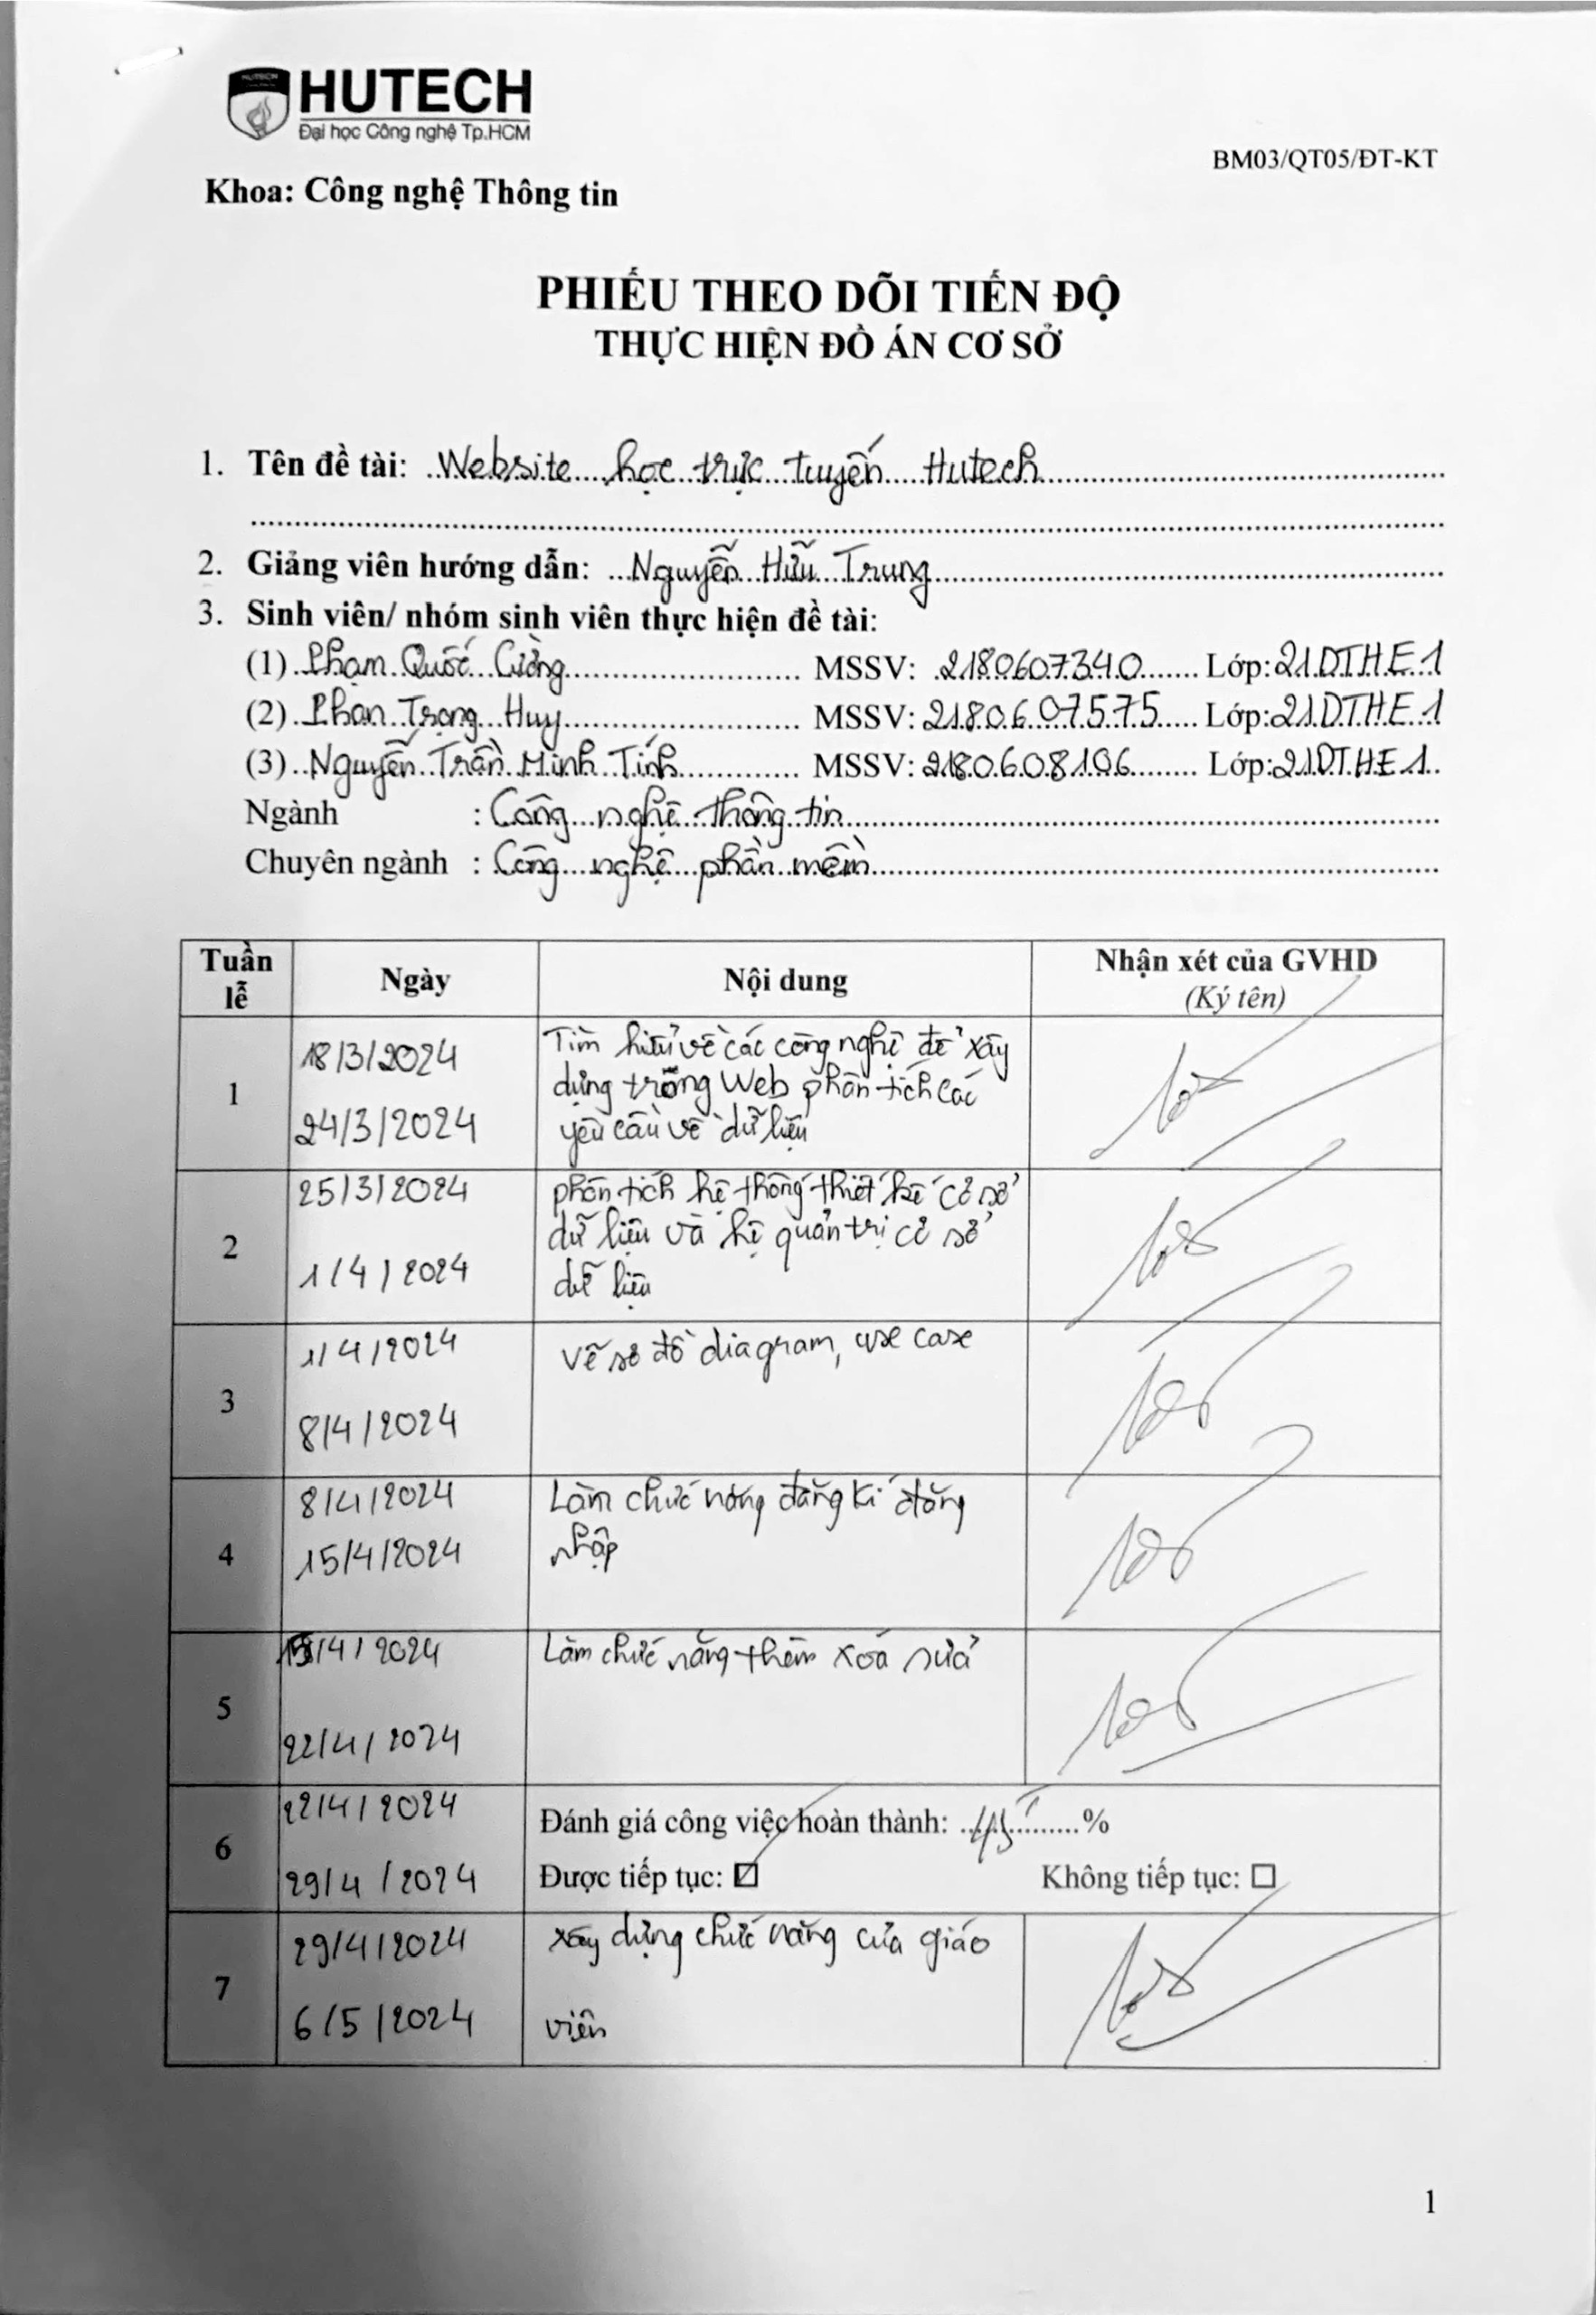 HUTECH
HUTECH
Đại học Công nghệ Tp.HCM
BM03/QT05/ĐT-KT
Khoa: Công nghệ Thông tin
PHIẾU THEO DÕI TIẾN ĐỘ
THỰC HIỆN ĐỒ ÁN CƠ SỞ
1. Tên đề tài: Website học trực tuyến Hutech
2. Giảng viên hướng dẫn: Nguyễn Hữu Trung
3. Sinh viên/ nhóm sinh viên thực hiện đề tài:
(1) Phạm Quốc Cường MSSV: 2180607340 Lớp: 21DTHE1
(2) Phan Trọng Huy MSSV: 2180607575 Lớp: 21DTHE1
(3) Nguyễn Trần Minh Tính MSSV: 2180608106 Lớp: 21DTHE1
Ngành : Công nghệ thông tin
Chuyên ngành : Công nghệ phần mềm
Tuần lễ Ngày Nội dung Nhận xét của GVHD
(Ký tên)
1
18/3/2024
24/3/2024
Tìm hiểu về các công nghệ để xây
dựng trong Web phân tích các
yêu cầu về dữ liệu
2
25/3/2024
1/4/2024
phân tích hệ thống thiết kế cơ sở
dữ liệu và hệ quản trị cơ sở
dữ liệu
3
1/4/2024
8/4/2024
vẽ sơ đồ diagram, use case
4
8/4/2024
15/4/2024
Làm chức năng đăng kí đăng
nhập
5
15/4/2024
22/4/2024
Làm chức năng thêm xoá sửa
6
22/4/2024
29/4/2024
Đánh giá công việc hoàn thành: %
Được tiếp tục: ☑ Không tiếp tục: ☐
7
29/4/2024
6/5/2024
xây dựng chức năng của giáo
viên
1